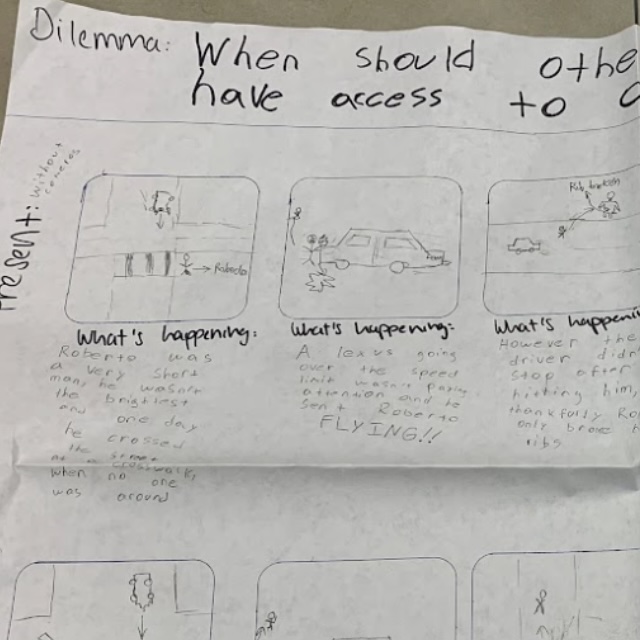 Dilemma: When should othe
have access to
Present: without
cameras
Roberto
What's happening:
Roberto was
a very short
man, he wasn't
the brightest
and one day
he crossed
the street
at the crosswalk,
when no one
was around
What's happening:
A lexus going
over the speed
limit wasn't paying
attention and he
sent Roberto
FLYING!!
What's happeni
However the
driver didn
stop after
hitting him,
thankfully Ro
only broke
ribs